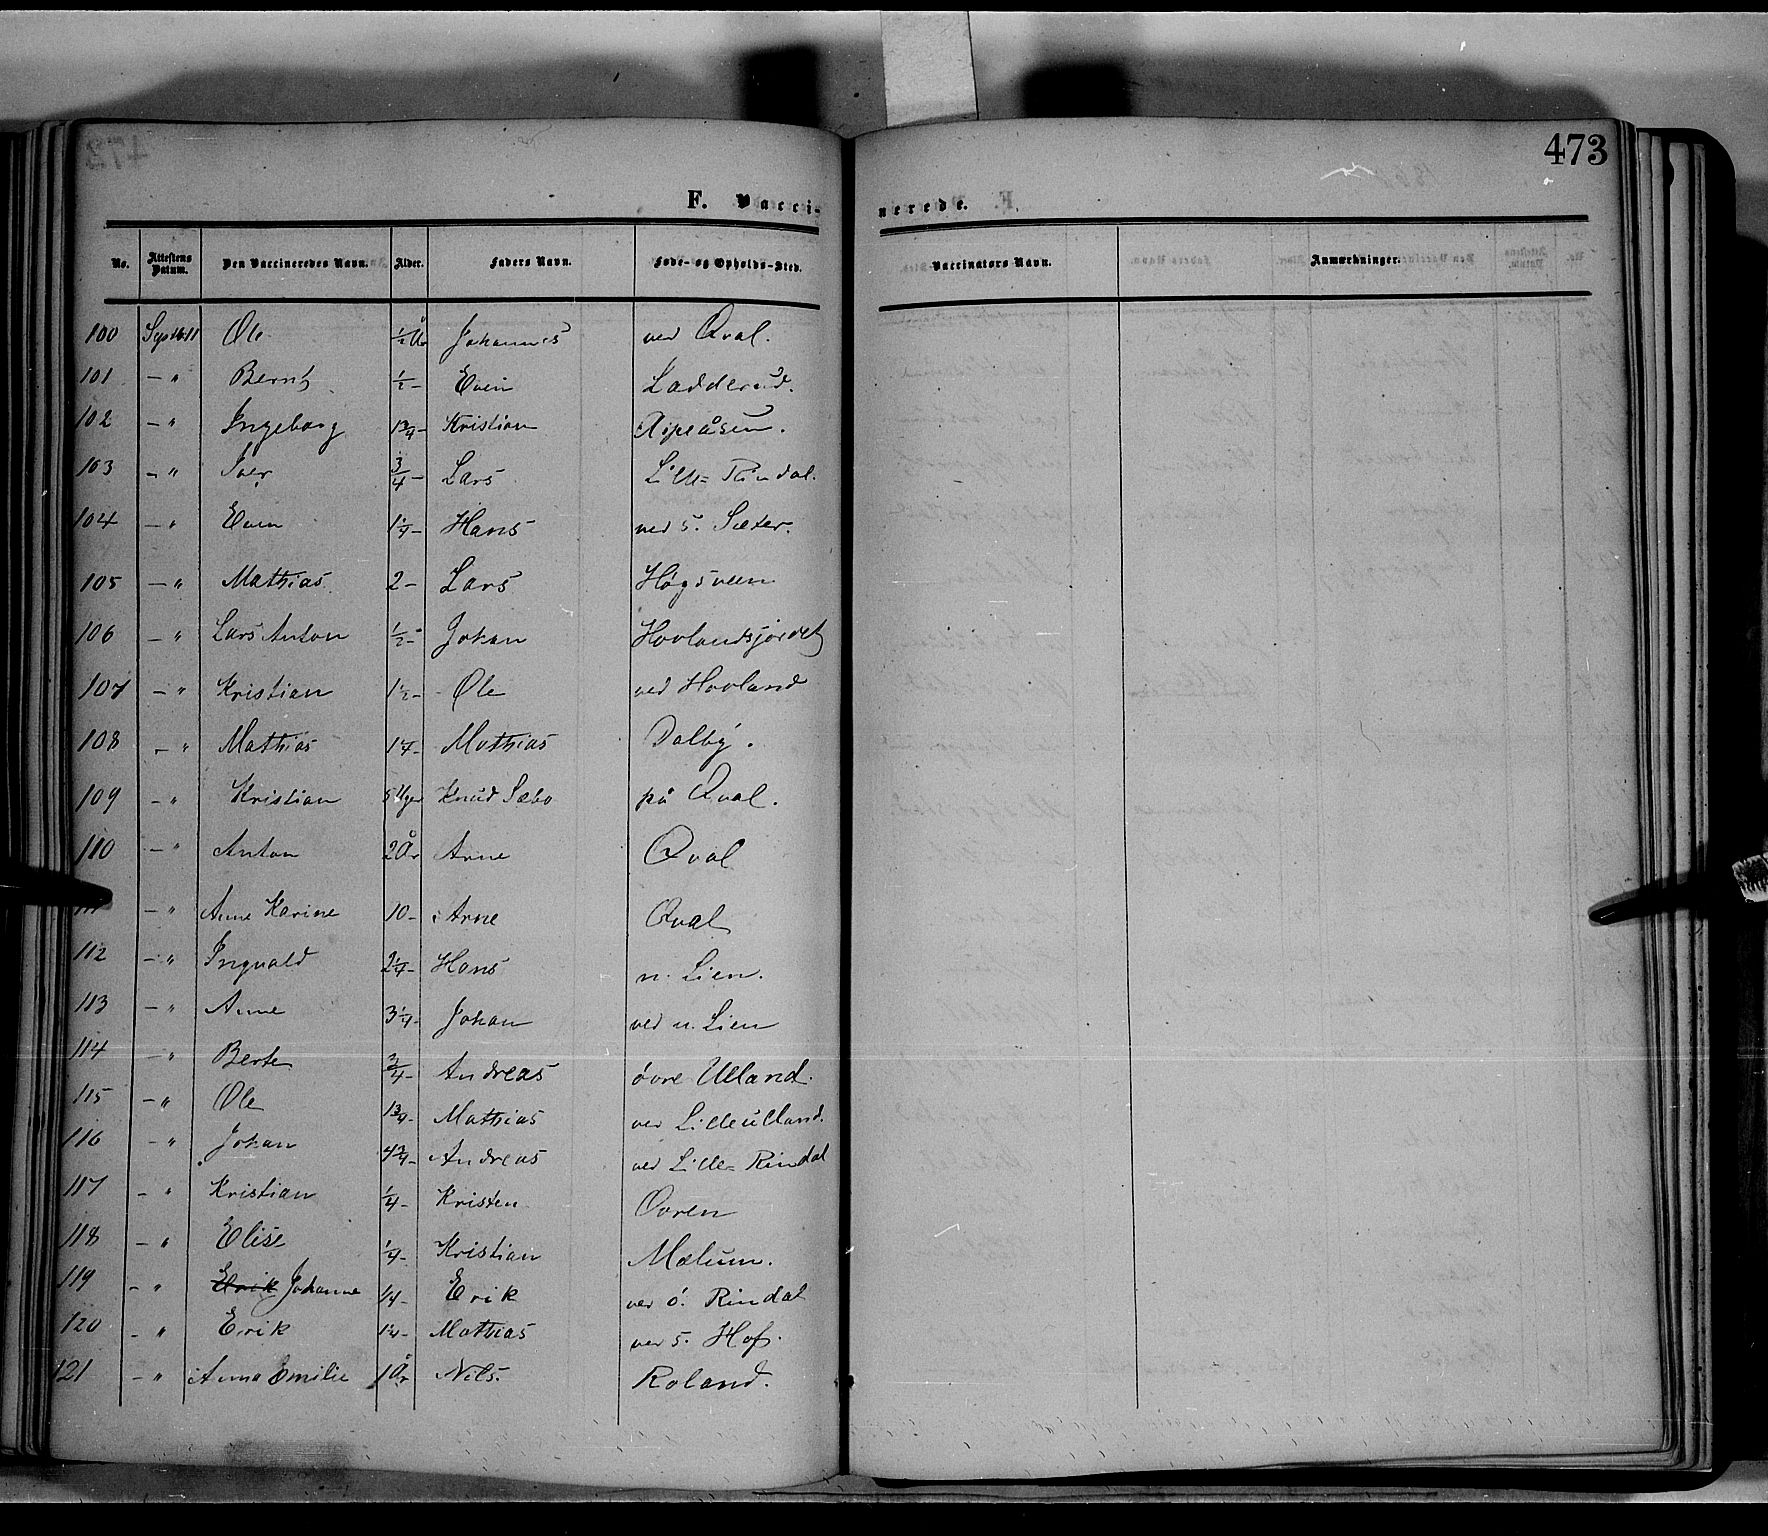 473
F. Vacci- nerede.
No. Attestens Datum. Den Vaccineredes Navn. Alder. Faders Navn. Føde- og Opholds-Sted. Vaccinators Navn. Anmærkninger.
100 Septb 11 Ole 1/2 År Johannes ved Qval.
101 — " Bernt 1/2 - Even Ladderud.
102 — " Ingeborg 1 3/4 - Kristian Ripeåsen.
103 — " Iver 3/4 - Lars Lille= Rindal.
104 — " Even 1 1/4 - Hans ved s. Sæter.
105 — " Mathias 2 - Lars Høgsveen
106 — " Lars Anton 1/2 - Johan Hovlandsjordet
107 — " Kristian 1 1/2 - Ole ved Hovland
108 — " Mathias 1 1/4 - Mathias Dalby.
109 — " Kristian 5 Uger Knud Sæbo på Qval.
110 — " Anton 2 År Arne Qval
111 — " Anne Karine 10 - Arne Qval
112 — " Ingvald 2 1/4 - Hans n. Lien.
113 — " Anne 3 1/4 - Johan ved n. Lien
114 — " Berte 3/4 - Andreas øvre Ulland.
115 — " Ole 1 3/4 - Mathias ved Lilleulland.
116 — " Johan 4 3/4 - Andreas ved Lille= Rindal
117 — " Kristian 1/4 - Kristen Ovren
118 — " Elise 1/4 - Kristian Mælum.
119 — " Erik Johanne 1/4 - Erik ved ö. Rindal
120 — " Erik 1 1/4 - Mathias ved s. Hof.
121 — " Anna Emilie 1 År Nils. Roland.